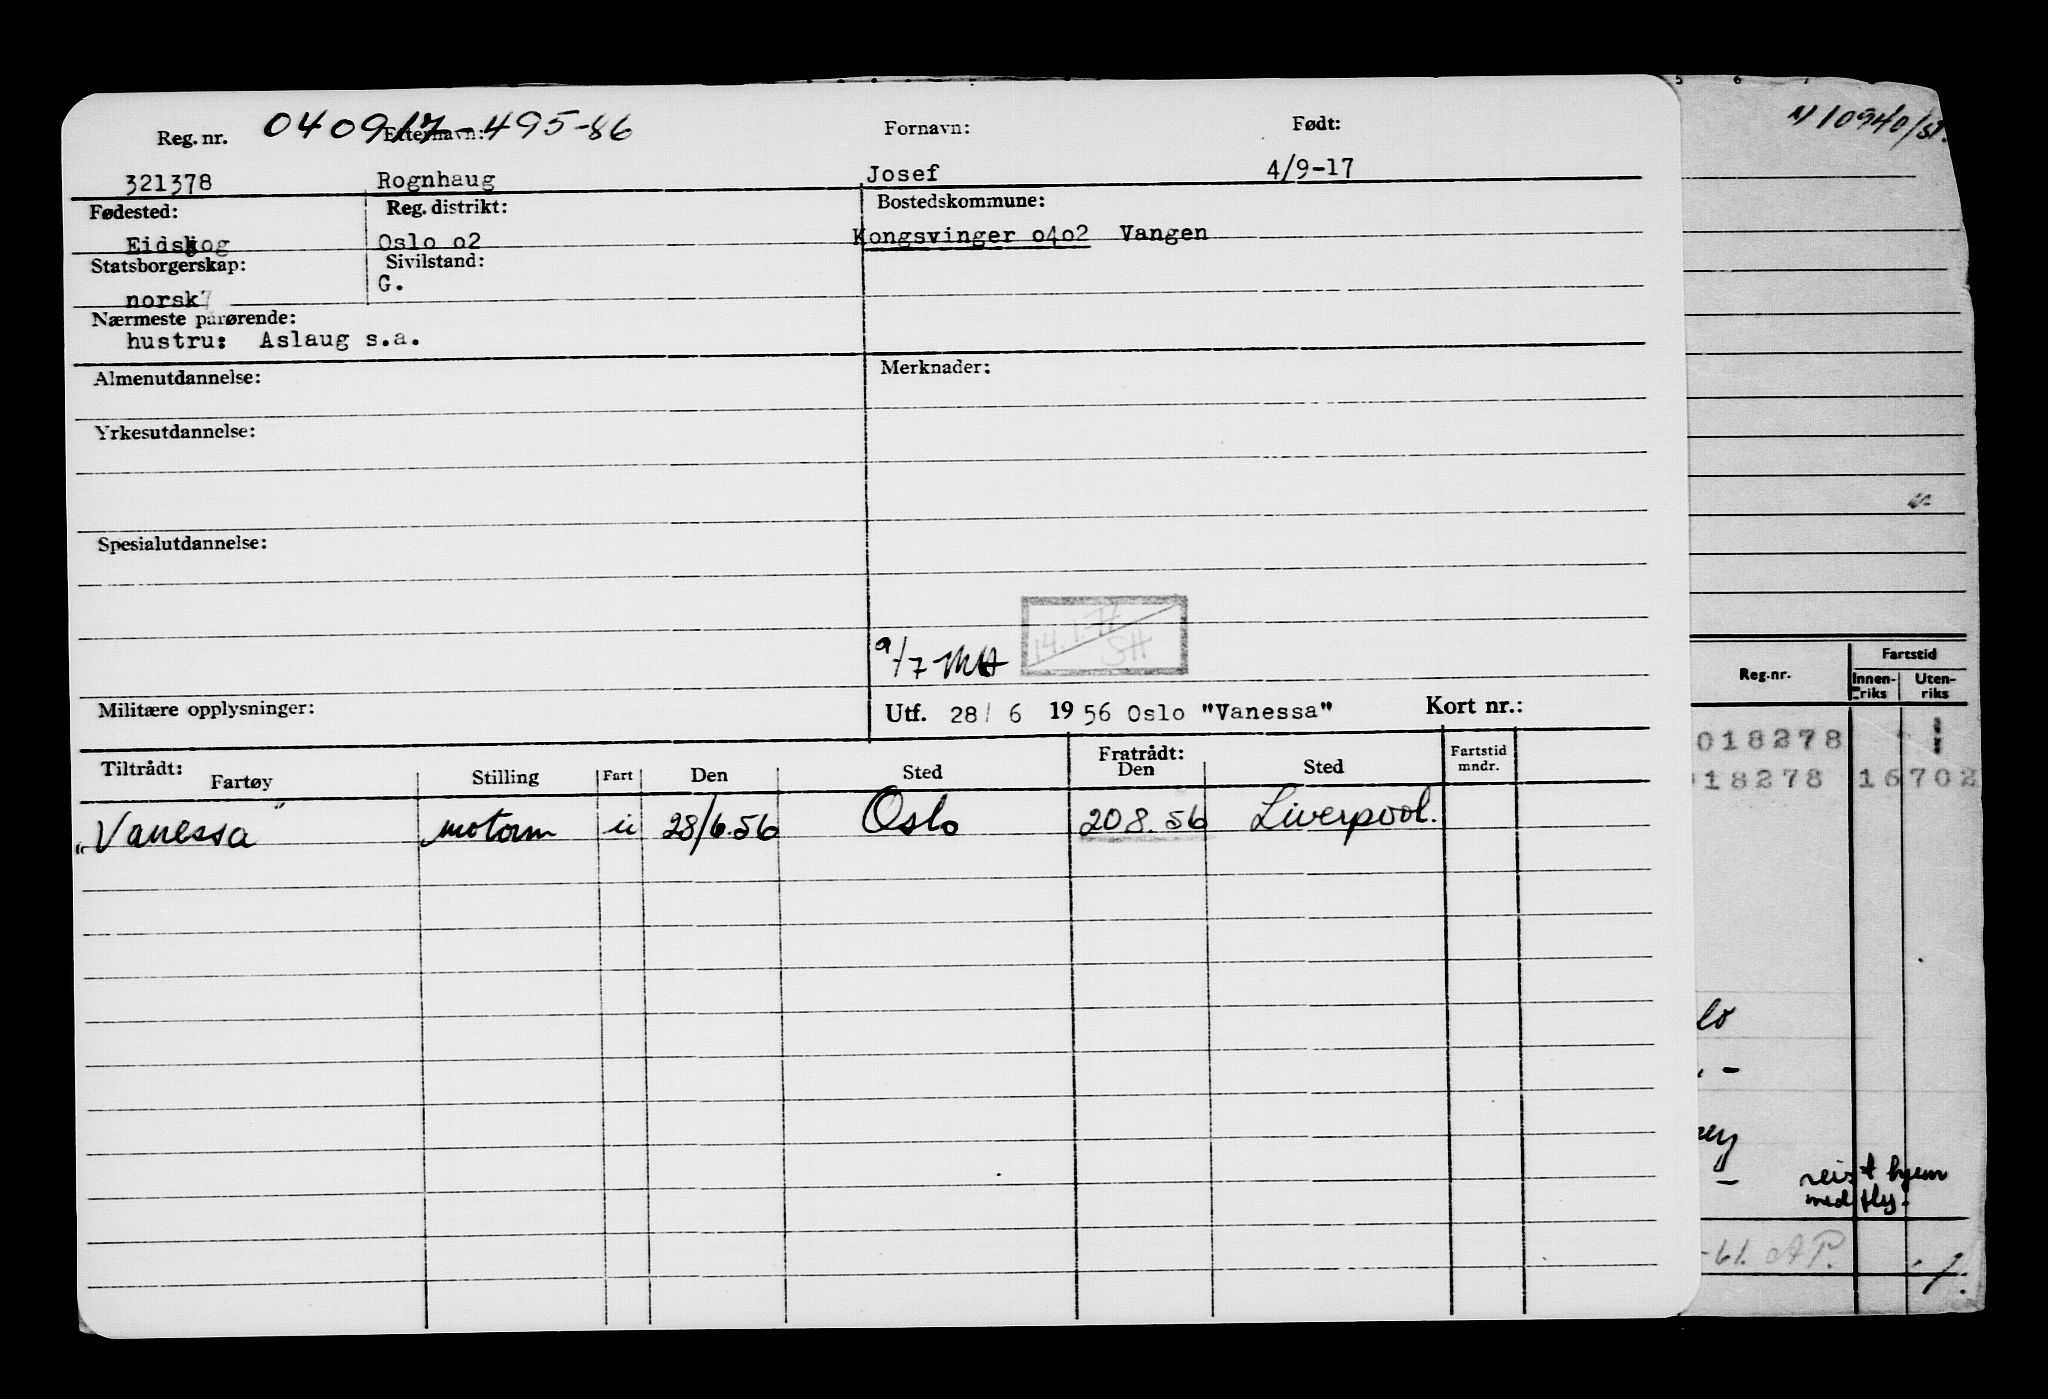 Reg. nr. 040917-495-86 Etternavn: Fornavn: Født:
321378 Rognhaug Josef 4/9-17
Fødested: Reg. distrikt: Bostedskommune:
Eidskog Oslo o2 Kongsvinger o4o2 Vangen
Statsborgerskap: Sivilstand:
norsk G.
Nærmeste pårørende:
hustru: Aslaug s.a.
Almenutdannelse: Merknader:
Yrkesutdannelse:
Spesialutdannelse:
14.1-76
SH
9/7 MH
Militære opplysninger: Utf. 28/ 6 1956 Oslo "Vanessa" Kort nr.:
Tiltrådt: Fratrådt: Fartstid
Fartøy Stilling Fart Den Sted Den Sted mndr.
"Vanessa" motorm u 28/6.56 Oslo 20 8. 56 Liverpool.
5 6 7
Fartstid
Reg.nr. Innen- Uten-
riks riks
018278
18278 16702
lo
ey
reist hjem
med fly.
-61. AP.